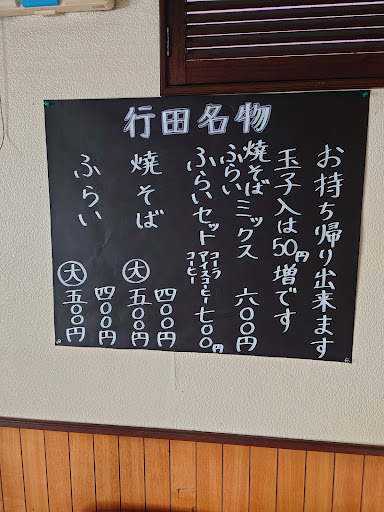 行田名物
お持ち帰り出来ます
玉子入は50円増です
焼そば
ふらい
ミックス 六〇〇円
ふらいセット
コーラ
アイスコーヒー
コーヒー
七〇〇円
焼そば 四〇〇円
大 五〇〇円
ふらい 四〇〇円
大 五〇〇円